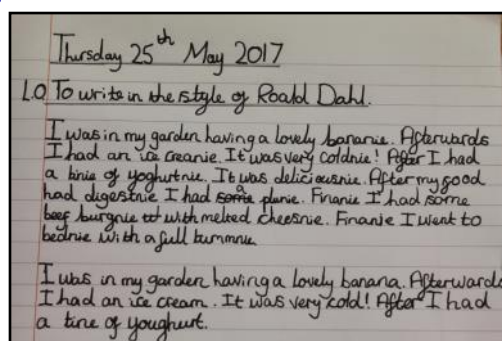 Thursday 25th May 2017
L.O To write in the style of Roald Dahl.
I was in my garden having a lovely bananie. Afterwards
I had an ice creanie. It was very coldnie! After I had
a tinie of yoghutnie. It was deliciousnie. After my good
had digestnie I had a plunie. Finanie I had some
burgnie with melted cheesnie. Finanie I went to
bednie with a full tummnie
I was in my garden having a lovely banana. Afterwards
I had an ice cream. It was very cold! After I had
a tine of youghurt.